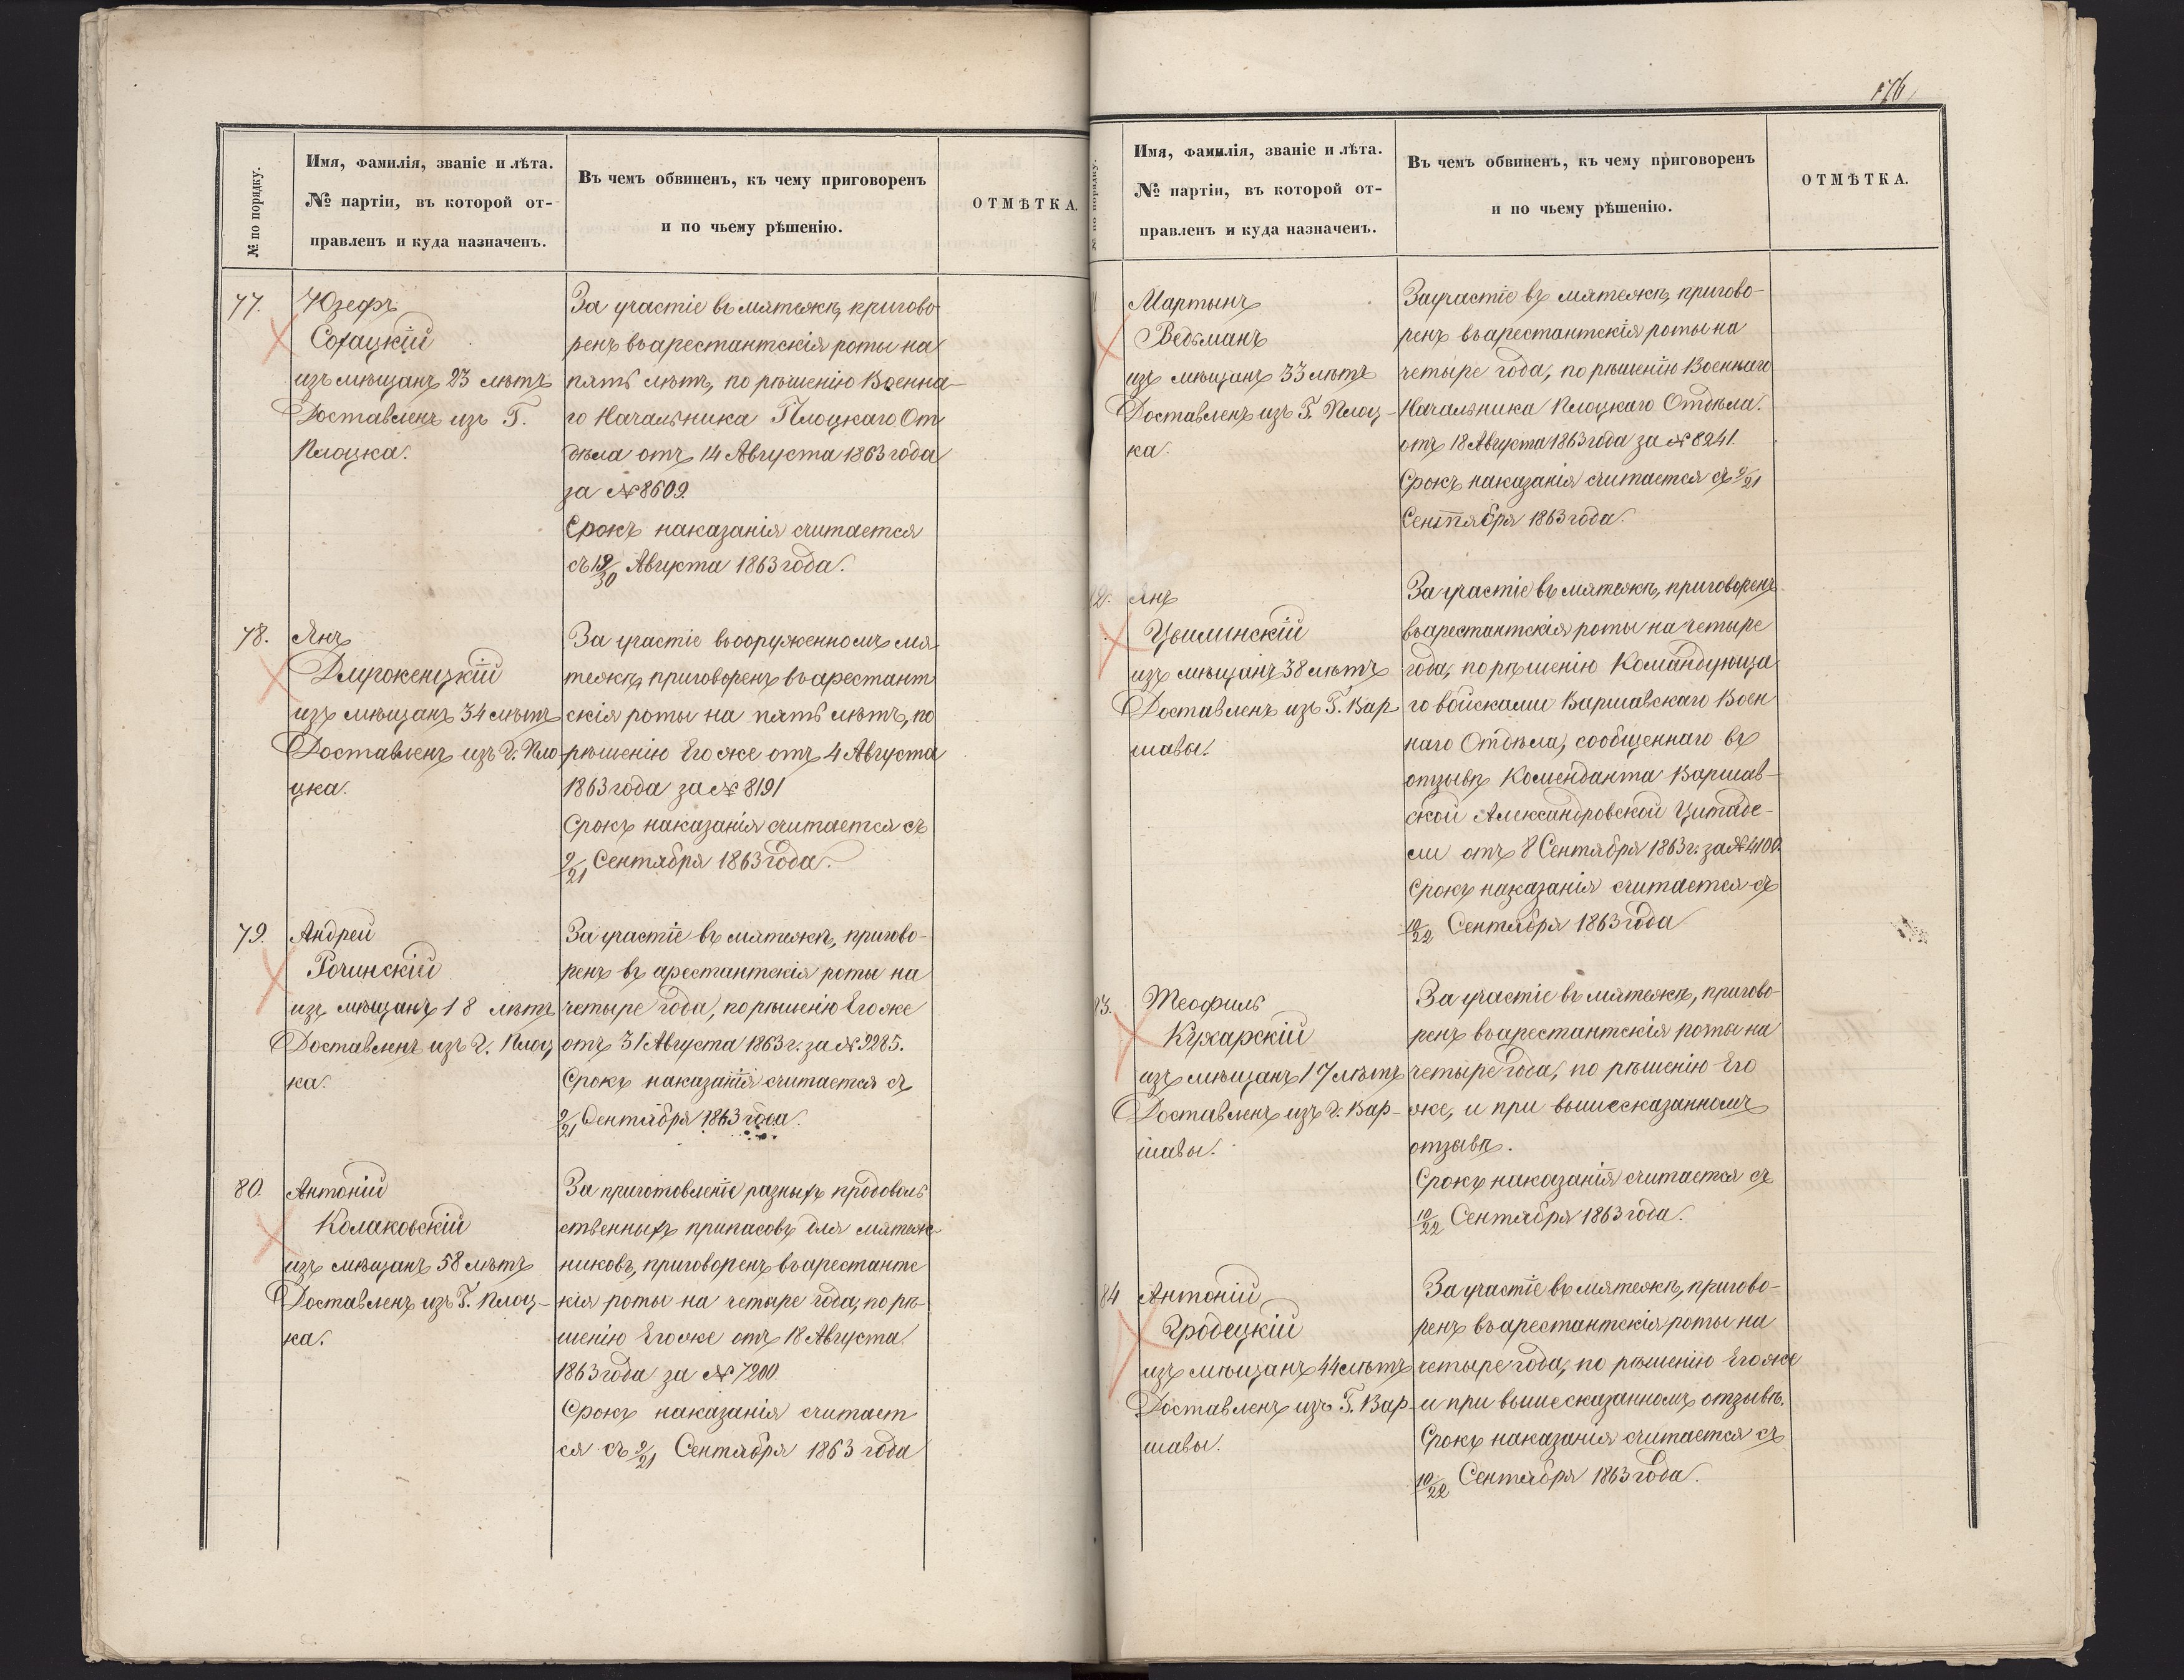 № по порядку.
Имя, фамилія, званіе и лѣта.
№ партіи, въ которой от-
правленъ и куда назначенъ.
Въ чемъ обвиненъ, къ чему приговоренъ
и по чьему рѣшенію.
ОТМѢТКА.
77.
Юзефъ
Сохацкій
изъ мѣщанъ 23 лѣтъ
Доставленъ изъ Г.
Плоцка.
За участіе въ мятежѣ, пригово-
ренъ въ арестантскія роты на
пять лѣтъ, по рѣшенію Военна-
го Начальника Плоцкаго От
дѣла отъ 14 Августа 1863 года
за № 8609.
Срокъ наказанія считается
съ 18/30 Августа 1863 года.
78.
Янъ
Длугокенцкій
изъ мѣщанъ 34 лѣтъ
Доставленъ изъ г. Пло-
цка.
За участіе въ вооруженномъ мя
тежѣ, приговоренъ въ арестант
скія роты на пять лѣтъ, по
рѣшенію Его же отъ 4 Августа
1863 года за № 8191
Срокъ наказанія считается съ
9/21 Сентября 1863 года.
79.
Андрей
Рочинскій
изъ мѣщанъ 18 лѣтъ
Доставленъ изъ г. Плоц
ка.
За участіе въ мятежѣ, пригово-
ренъ въ арестантскія роты на
четыре года, по рѣшенію Его же
отъ 31 Августа 1863 г. за № 9285.
Срокъ наказанія считается съ
9/21 Сентября 1863 года.
80.
Антоній
Колаковскій
изъ мѣщанъ 58 лѣтъ
Доставленъ изъ Г. Плоц-
ка.
За приготовленіе разныхъ продоволь
ственныхъ припасовъ для мятеж-
никовъ, приговоренъ въ арестантс
кія роты на четыре года, по рѣ-
шенію Его же отъ 18 Августа
1863 года за № 7200.
Срокъ наказанія считает
ся съ 9/21 Сентября 1863 года
176
№ по порядку.
Имя, фамилія, званіе и лѣта.
№ партіи, въ которой от-
правленъ и куда назначенъ.
Въ чемъ обвиненъ, къ чему приговоренъ
и по чьему рѣшенію.
ОТМѢТКА.
Мартынъ
Ведьманъ
изъ мѣщанъ 33 лѣтъ
Доставленъ изъ Г. Плоц-
ка.
За участіе въ мятежѣ, пригово-
ренъ въ арестантскія роты на
четыре года, по рѣшенію Военнаго
Начальника Плоцкаго Отдѣла.
отъ 18 Августа 1863 года за № 8241.
Срокъ наказанія считается съ 9/21
Сентября 1863 года.
2.
Янъ
Цвилинскій
изъ мѣщанъ 38 лѣтъ
Доставленъ изъ Г. Вар
шавы.
За участіе въ мятежѣ, приговоренъ
въ арестантскія роты на четыре
года, по рѣшенію Командующа
го войсками Варшавскаго Воен
наго Отдѣла, сообщеннаго въ
отзывѣ Коменданта Варшав-
ской Александровской Цитаде-
ли отъ 8 Сентября 1863 г. за № 4100.
Срокъ наказанія считается съ
10/22 Сентября 1863 года
3.
Теофиль
Кухарскій
изъ мѣщанъ 17 лѣтъ
Доставленъ изъ г. Вар-
шавы.
За участіе въ мятежѣ, пригово-
ренъ въ арестантскія роты на
четыре года, по рѣшенію Его
же, и при вышесказанномъ
отзывѣ.
Срокъ наказанія считается съ
10/22 Сентября 1863 года.
84
Антоній
Гродецкій
изъ мѣщанъ 44 лѣтъ
Доставленъ изъ Г. Вар-
шавы.
За участіе въ мятежѣ, пригово-
ренъ въ арестантскія роты на
четыре года, по рѣшенію Его же
и при вышесказанномъ отзывѣ.
Срокъ наказанія считается съ
10/22 Сентября 1863 года.